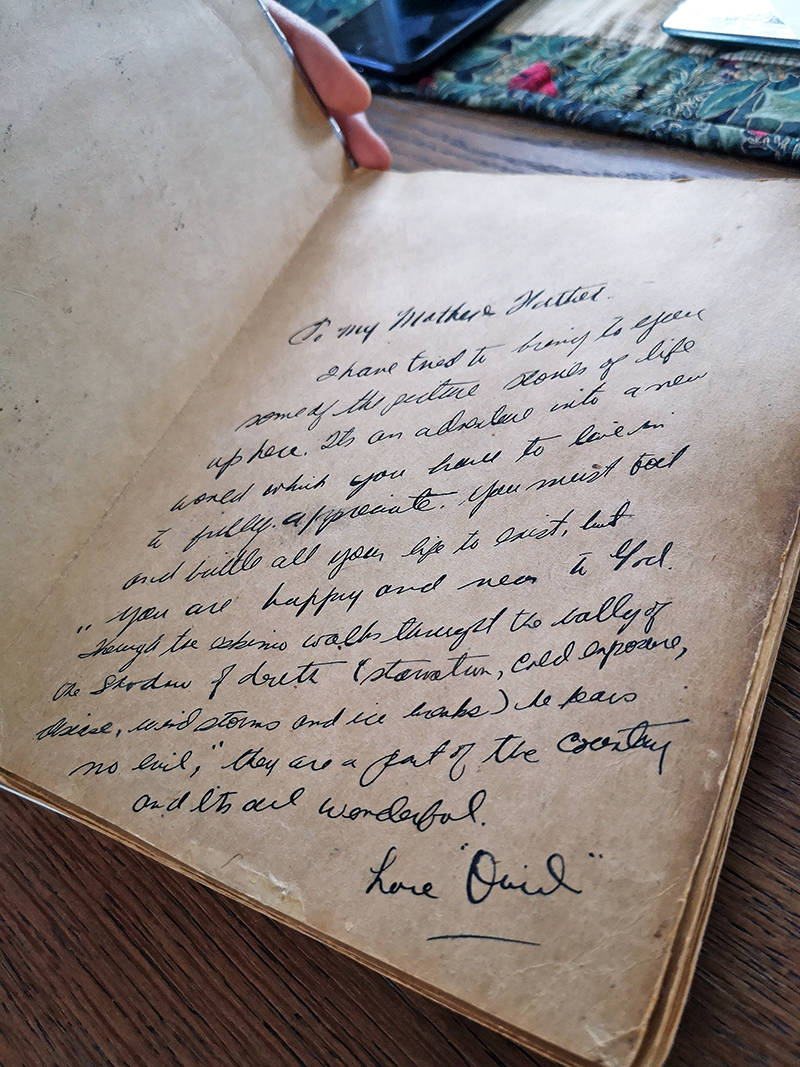 To My Mother & Father.
I have tried to bring to you
some of the picture stories of life
up here. Its an adventure into a new
world which you have to live in
to fully appreciate. You must toil
and battle all your life to exist, but
"you are happy and near to God.
Though the eskimo walks through the vally of
the Shadow of death (starvation, cold exposure,
disease, wind storms and ice breaks) he fears
no evil," they are a part of the country
and Its all wonderful.
Love